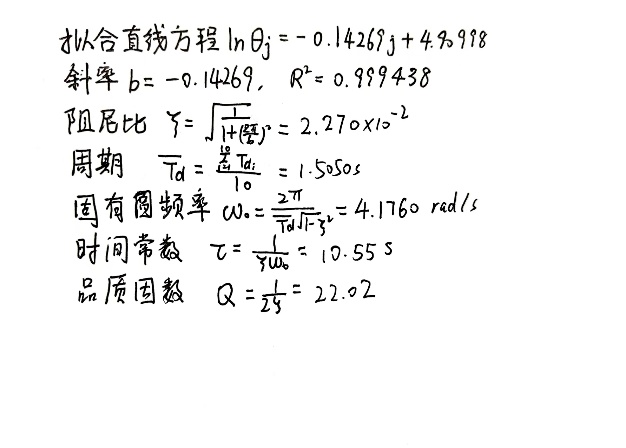 拟合直线方程 lnθj = -0.14269j + 4.90998
斜率 b = -0.14269, R² = 0.999438
阻尼比 ζ = √(1/(1+(2π/b)²)) = 2.270×10⁻²
周期 T̅d = Σ(i=1→10) Tdi / 10 = 1.5050s
固有圆频率 ω₀ = 2π/(T̅d√(1-ζ²)) = 4.1760 rad/s
时间常数 τ = 1/(ζω₀) = 10.55 s
品质因数 Q = 1/(2ζ) = 22.02